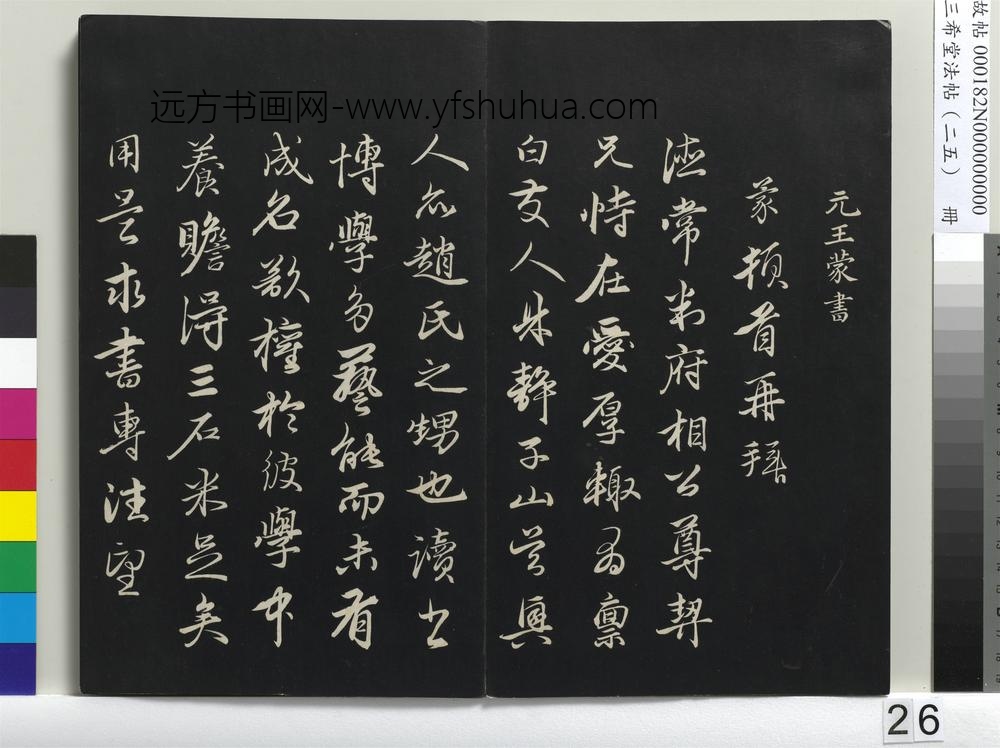 远方书画网-www.yfshuhua.com
故帖 000182N000000000
三希堂法帖(二五) 冊
元王蒙書
蒙頓首再拜
德常判府相公尊契
兄恃在愛厚輙有稟
白友人朱靜子山吳興
人亦趙氏之甥也讀書
博學多藝能而未有
成名欲權於彼學中
養贍得三石米足矣
用是求書專注望
26